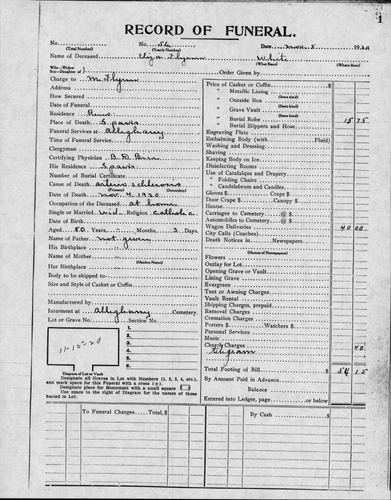 1
RECORD OF FUNERAL.
No. No. Date Nov. 5 1920
(Total Number) (Yearly Number)
Name of Deceased Eliza Flynn White
(What Race) (Where Born)
Charge to M. Flynn
Order Given by
Address
How Secured
Date of Funeral
Residence Reno
Place of Death Sparks
Funeral Services at Alleghany
Time of Funeral Service
Clergyman
Certifying Physician
His Residence Sparks
Number of Burial Certificate
Cause of Death
Date of Death Nov. 4, 1920
Occupation of the Deceased at home
Single or Married wid. Religion Catholic
Date of Birth
Aged 80 Years, Months, 3 Days
Name of Father not given
His Birthplace
Name of Mother
(Maiden Name)
Her Birthplace
Body to be shipped to
Size and Style of Casket or Coffin
Manufactured by
Interment at Alleghany Cemetery.
Lot or Grave No. Section No.
11-10-20
1.
2.
3.
4.
5.
6.
Diagram of Lot or Vault
Designate all Graves in Lot with Numbers (1, 2, 3, 4, etc.),
and mark space for this Funeral with a cross (+).
Designate place for Monument with a small square
Use space to right of Diagram for the names of those
buried in Lot.
Price of Casket or Coffin $
" Metallic Lining
" Outside Box
" Grave Vault
" Burial Robe 15 75
" Burial Slippers and Hose
Engraving Plate
Embalming Body (with Fluid)
Washing and Dressing
Shaving
Keeping Body on Ice
Disinfecting Rooms
Use of Catafalque and Drapery
" Folding Chairs
" Candelabrum and Candles
Gloves $ Crape $
Door Crape $ Canopy $
Hearse
Carriages to Cemetery @ $
Automobiles to Cemetery @ $
Wagon Deliveries 40 00
City Calls (Coaches)
Death Notices in Newspapers
(Names of Newspapers)
Flowers
Outlay for Lot
Opening Grave or Vault
Lining Grave
Evergreen
Tent or Awning Charges
Vault Rental
Shipping Charges, prepaid
Removal Charges
Cremation Charges
Porters $ Watchers $
Personal Services
Music
Church Charges 40
telegram
Total Footing of Bill $
By Amount Paid in Advance
Balance
Entered into Ledger, page or below.
To Funeral Charges $ By Cash $